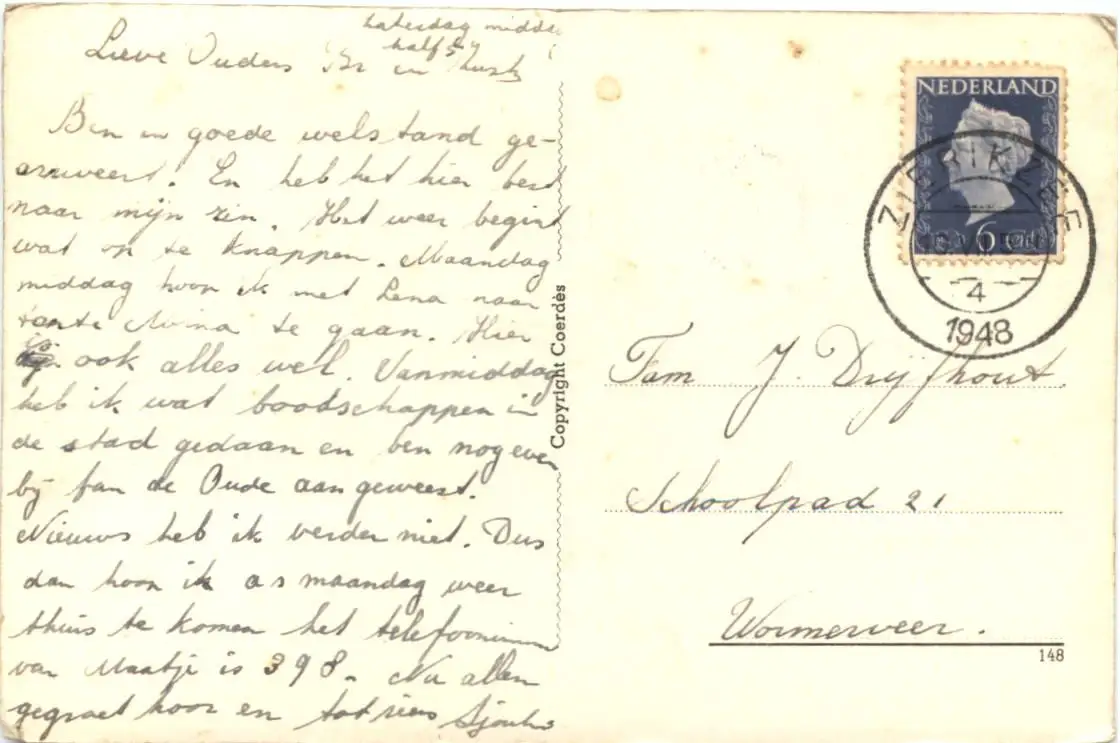 Zaterdag middag
half 5
Lieve Ouders Br en Zusk
Ben in goede welstand ge-
arriveert. En heb het hier best
naar mijn zin. Het weer begint
wat op te knappen. Maandag
middag hoop ik met Lena naar
tante Mina te gaan. Hier
is ook alles wel. Vanmiddag
heb ik wat bootschappen in
de stad gedaan en ben nog even
bij fam de Oude aangeweest.
Nieuws heb ik verder niet. Dus
dan hoop ik as maandag weer
thuis te komen het telefoonnum
van Maatje is 398. Nu allen
gegroet hoor en tot ziens
Copyright Coerdès
NEDERLAND
6 cent
ZIERIKZEE
4
1948
Fam J. Dryfhout.
Schoolpad 21
Wormerveer.
148